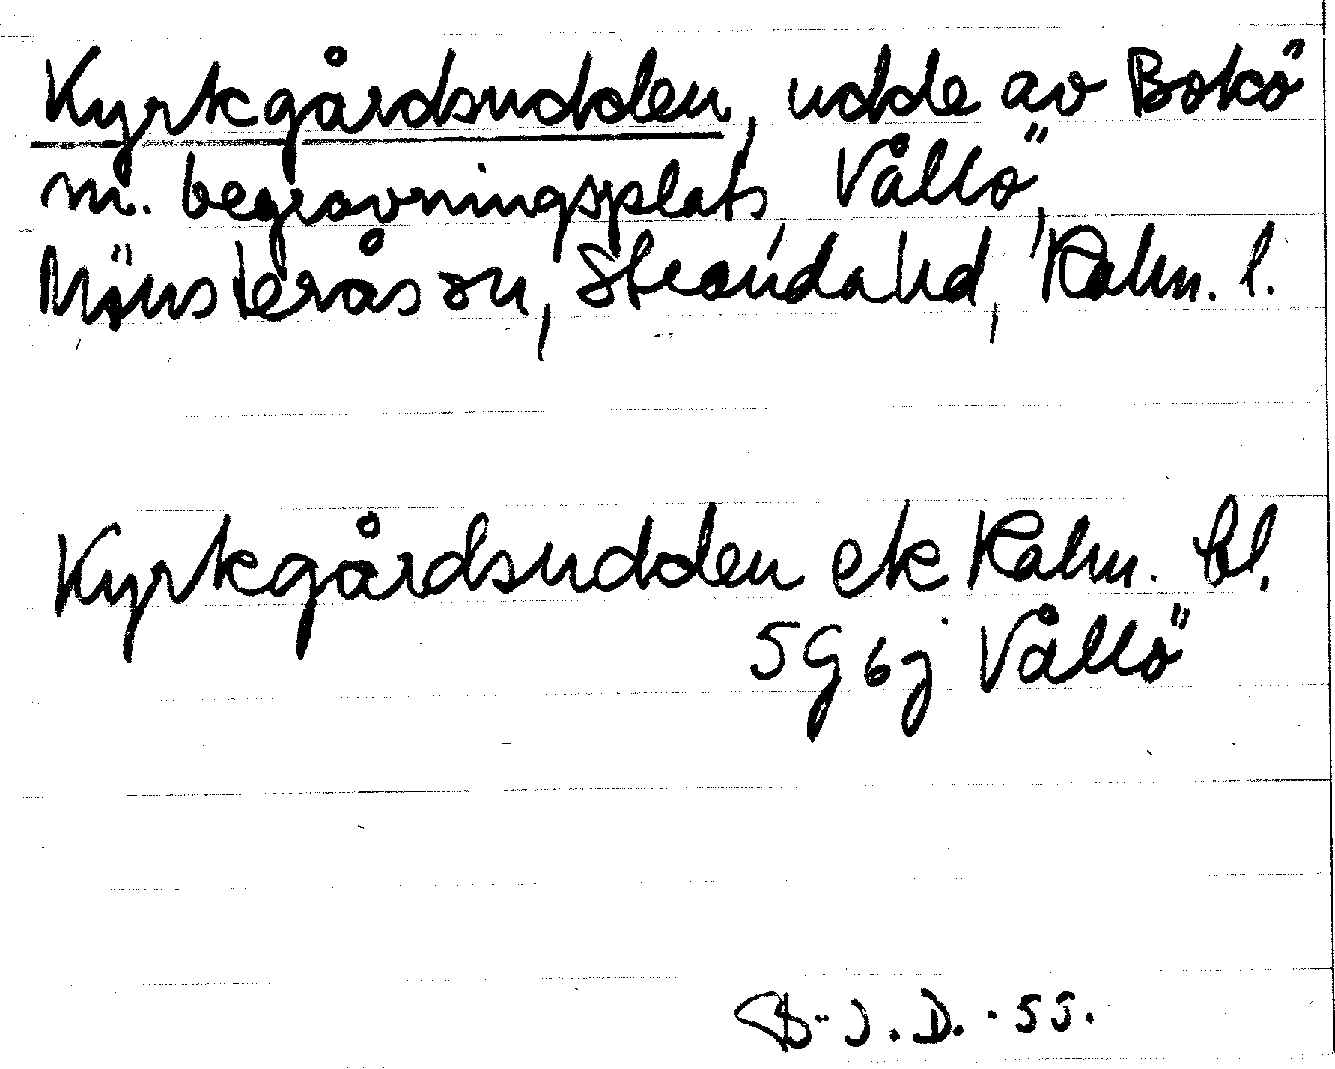 Kyrkgårdsudden, udde av Bokö
m. begravningsplats, Vållö,
Mönsterås sn, Stranda hd, Kalm. l.
Kyrkgårdsudden ek Kalm. bl.
5G6j Vållö
B-J.D.-55.